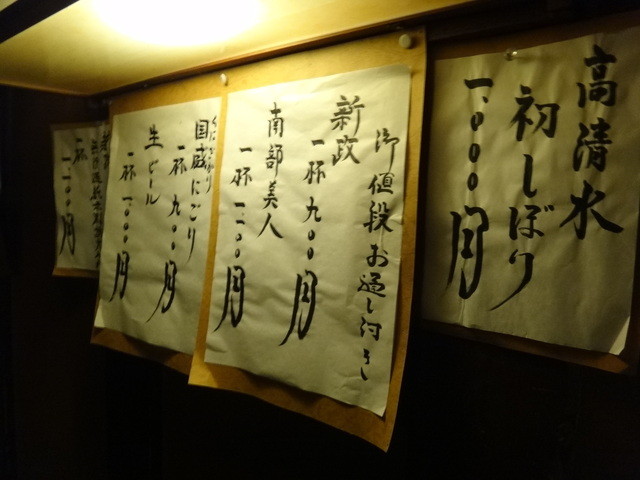 高清水
初しぼり
一、〇〇〇円
御値段お通し付き
新政
一杯九〇〇円
南部美人
一杯一、一〇〇円
国威にごり
一杯九〇〇円
生ビール
一杯一、〇〇〇円
一杯
一、一〇〇円